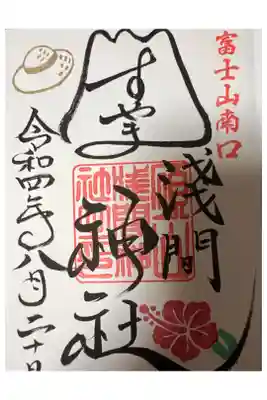 富士山南口
すやま
淺間
神社
令和四年八月二十日